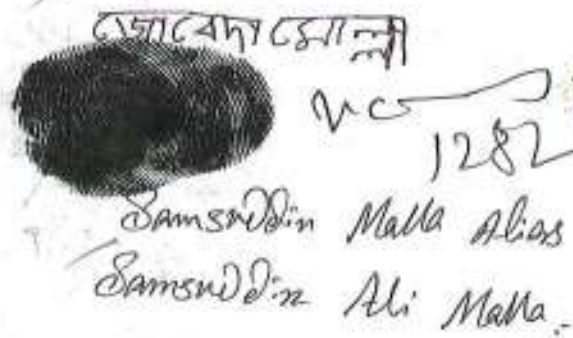 জোবেদা মোল্লা
1282
Samsuddin Malla Alias
Samsuddin Ali Malla.